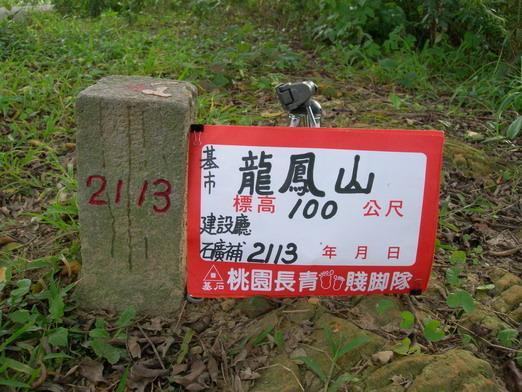 2113
基市
龍鳳山
標高 100 公尺
建設廳
石廣補 2113 年 月 日
基石 桃園長青賤脚隊